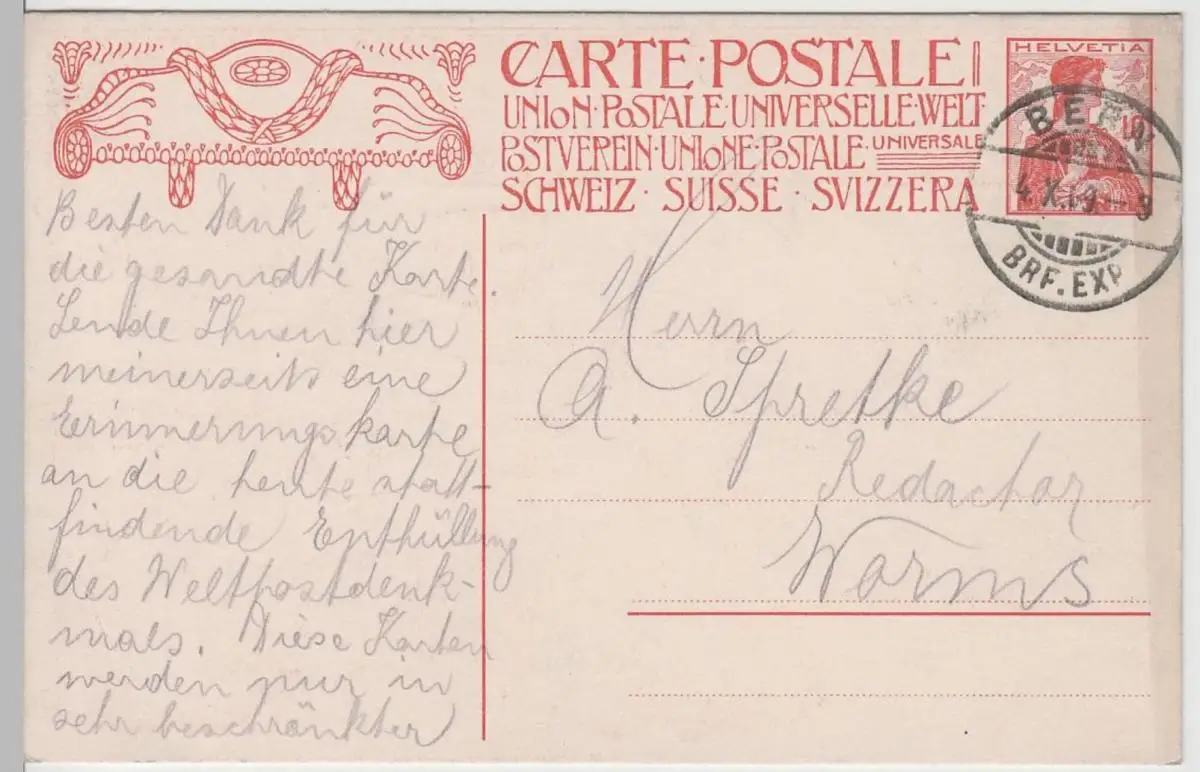 CARTE·POSTALE
UNION·POSTALE·UNIVERSELLE·WELT·
POSTVEREIN·UNIONE·POSTALE·UNIVERSALE
SCHWEIZ · SUISSE · SVIZZERA
HELVETIA
10
BERN
4.X.09.–9
BRF.EXP.
Besten Dank für
die gesandte Karte.
Sende Ihnen hier
meinerseits eine
Erinnerungskarte
an die heute statt-
findende Enthüllung
des Weltpostdenk-
mals. Diese Karten
werden nur in
sehr beschränkter
Herrn
A. Spretke
Redactor
Worms